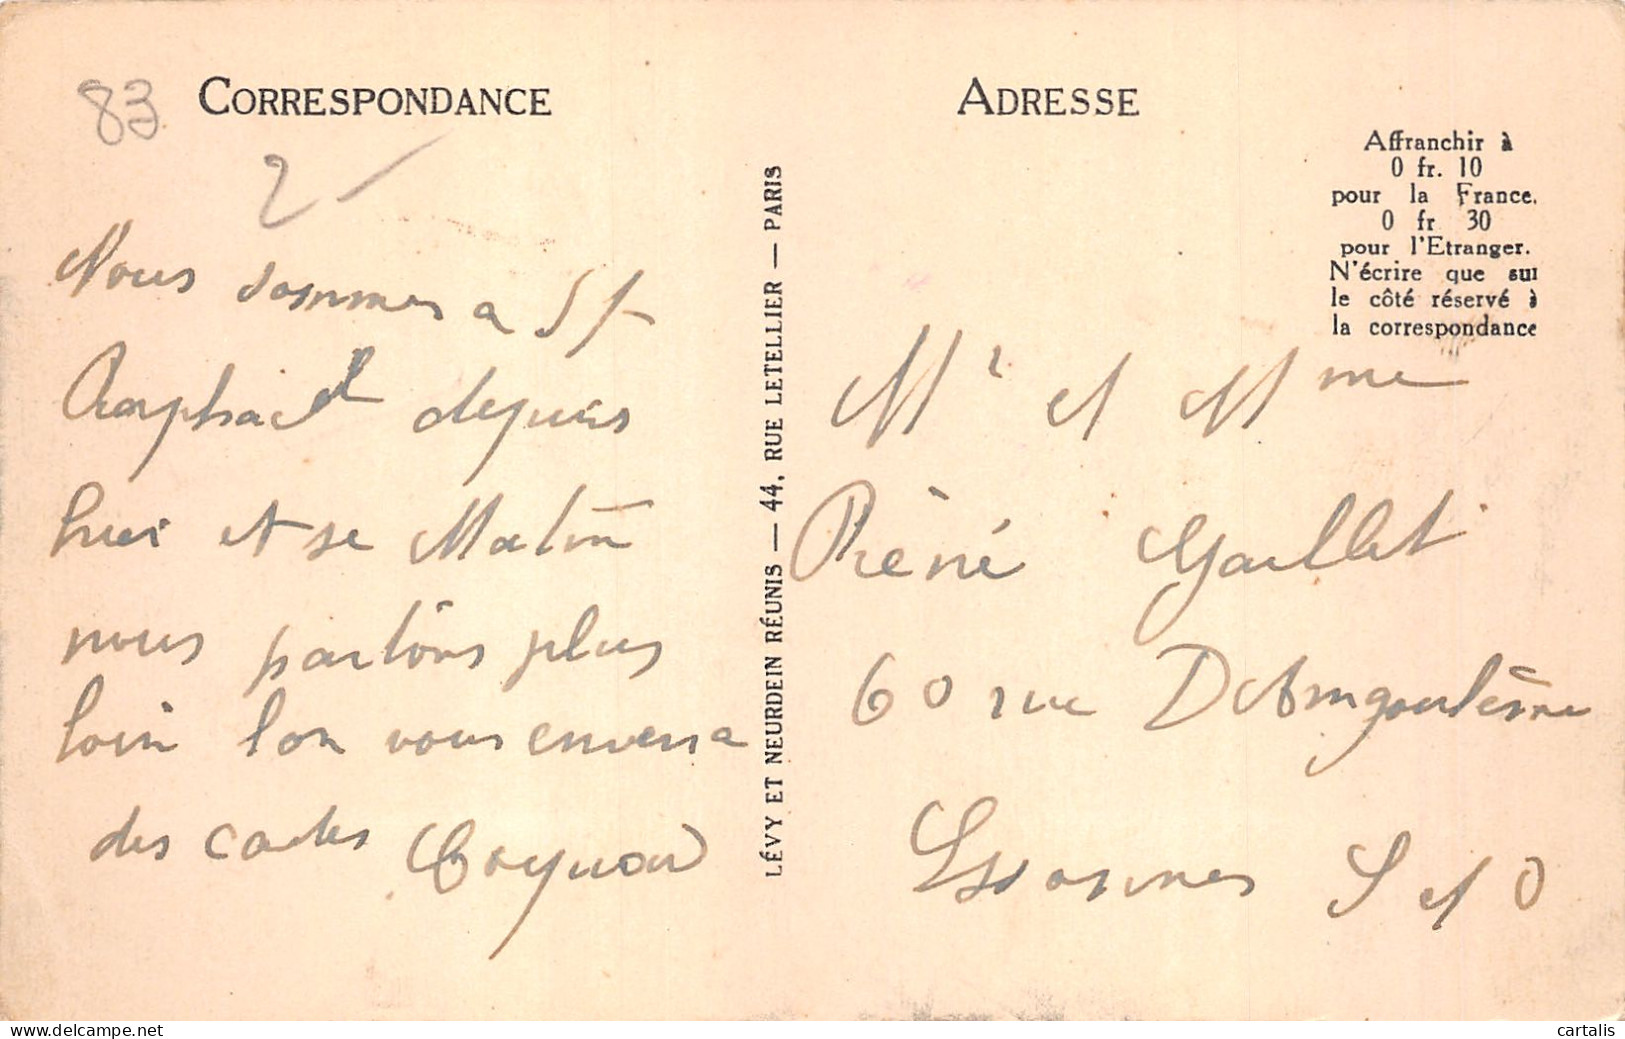 83
CORRESPONDANCE
2
Nous sommes a St
Raphael depuis
huei et se Matin
nous partons plus
loin lon vous enverra
des cartes
LÉVY ET NEURDEIN RÉUNIS — 44, RUE LETELLIER — PARIS
ADRESSE
Affranchir à
0 fr. 10
pour la France.
0 fr 30
pour l'Etranger.
N'écrire que sur
le côté réservé à
la correspondance
Mr et Mme
Rèné Gaillet
60 rue D'Angoulème
Essonnes S et O
cartalis